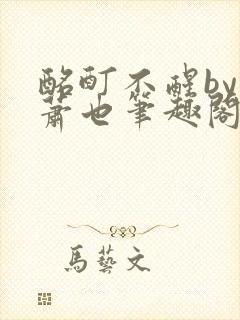 酩酊不醒by
萧也筆趣阁
馬藝文